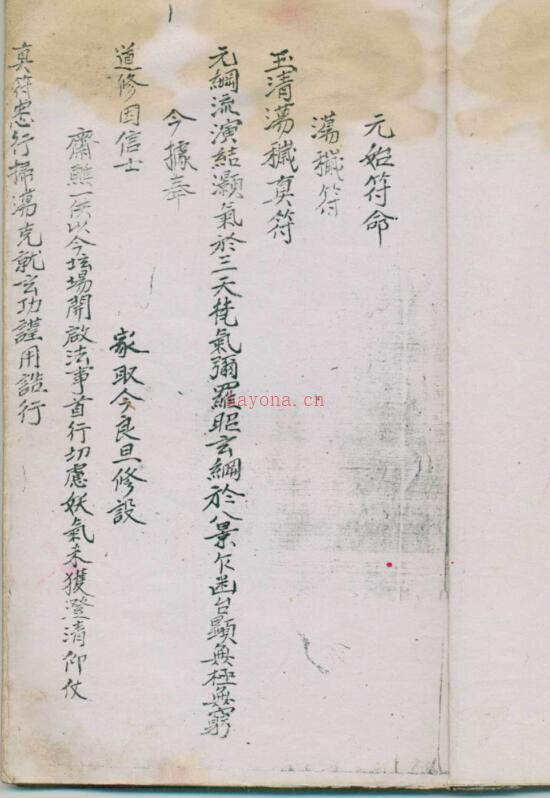 元始符命
蕩穢符
玉清蕩穢真符
元綱流演結灝氣於三天梵氣彌羅昭玄綱於八景 台顯無極無窮
今據奉
道修因信士 家取今良旦修設
齋醮一供以今坛場開啟法事首行切慮妖氣未獲澄清仰仗
真符悉行掃蕩克就玄功謹用誥行
nayona.cn